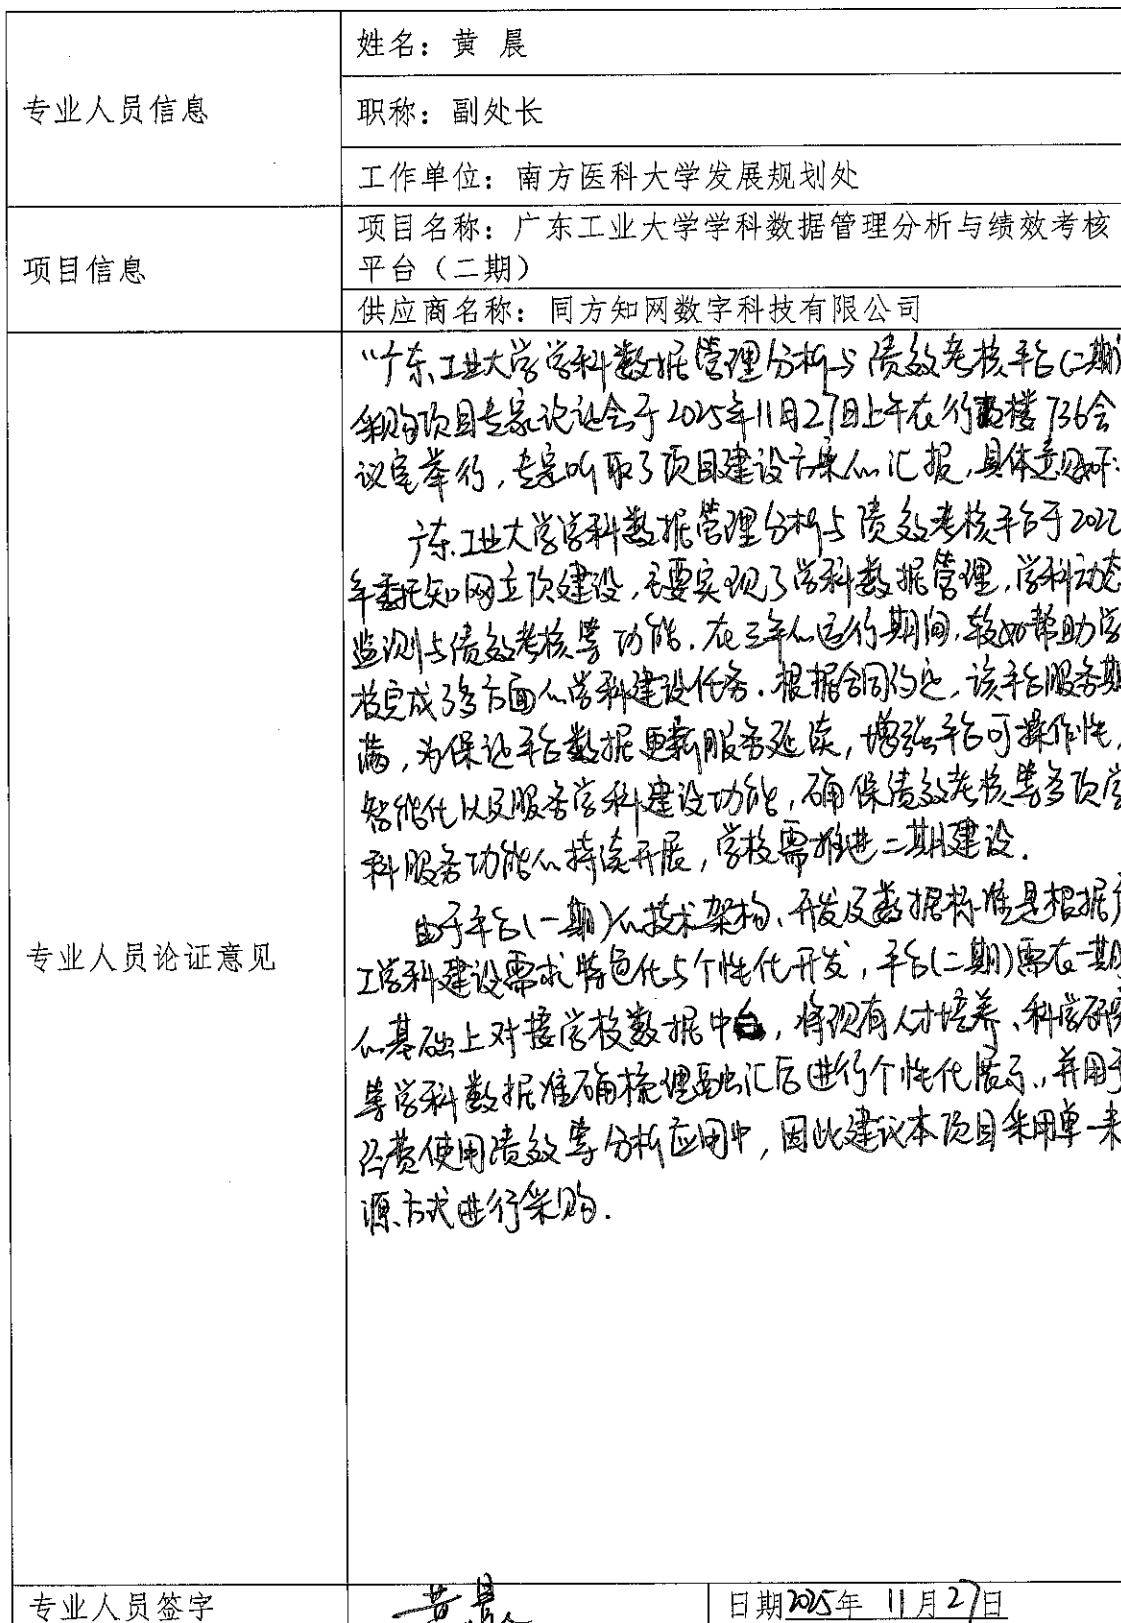 专业人员信息
姓名：黄 晨
职称：副处长
工作单位：南方医科大学发展规划处
项目信息
项目名称：广东工业大学学科数据管理分析与绩效考核
平台（二期）
供应商名称：同方知网数字科技有限公司
专业人员论证意见
“广东工业大学学科数据管理分析与绩效考核平台(二期)
采购项目专家论证会于2025年11月27日上午在行政楼736会
议室举行，专家听取了项目建设方案的汇报，具体意见如下：
广东工业大学学科数据管理分析与绩效考核平台于2022
年委托知网立项建设，主要实现了学科数据管理，学科动态
监测与绩效考核等功能。在三年的运行期间，较好帮助学
校完成了多方面的学科建设任务。根据合同约定，该平台服务期
满，为保证平台数据更新服务延续，增强平台可操作性，
智能化以及服务学科建设功能，确保绩效考核等多项学
科服务功能的持续开展，学校需推进二期建设.
由于平台(一期)的技术架构、开发及数据标准是根据广
工学科建设需求特色化与个性化开发，平台(二期)需在一期
的基础上对接学校数据中台，将现有人才培养、科学研究
等学科数据准确梳理融汇后进行个性化展示，并用于
经费使用绩效等分析应用中，因此建议本项目采用单一来
源方式进行采购.
专业人员签字
黄晨
日期2025年 11月27日